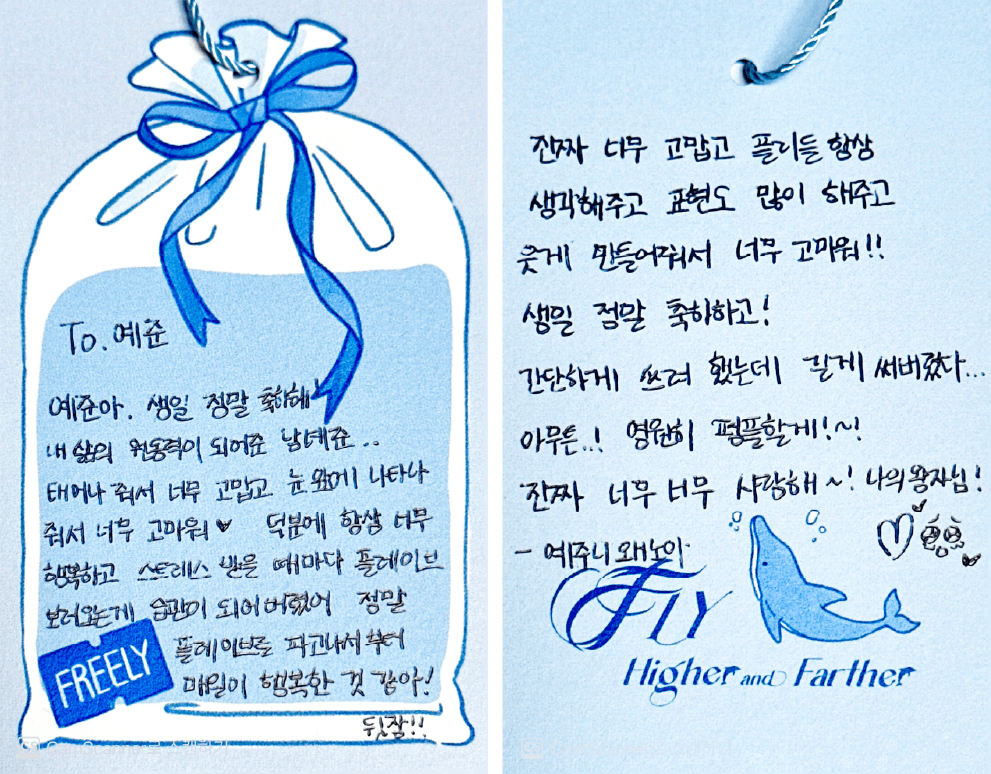 To. 예준
예준아. 생일 정말 축하해!
내 삶의 원동력이 되어준 남예준..
태어나 줘서 너무 고맙고 눈 앞에 나타나
줘서 너무 고마워♥ 덕분에 항상 너무
행복하고 스트레스 받을 때마다 플레이브
보러오는게 습관이 되어버렸어 정말
플레이브를 파고나서부터
매일이 행복한 것 같아!
FREELY
뒷장!!
진짜 너무 고맙고 플리들 항상
생각해주고 표현도 많이 해주고
웃게 만들어줘서 너무 고마워!!
생일 정말 축하하고!
간단하게 쓰려 했는데 길게 써버렸다...
아무튼..! 영원히 펑플할게!~!
진짜 너무 너무 사랑해~! 나의 왕자님!
- 예주니 왜노아
FLY
Higher and Farther